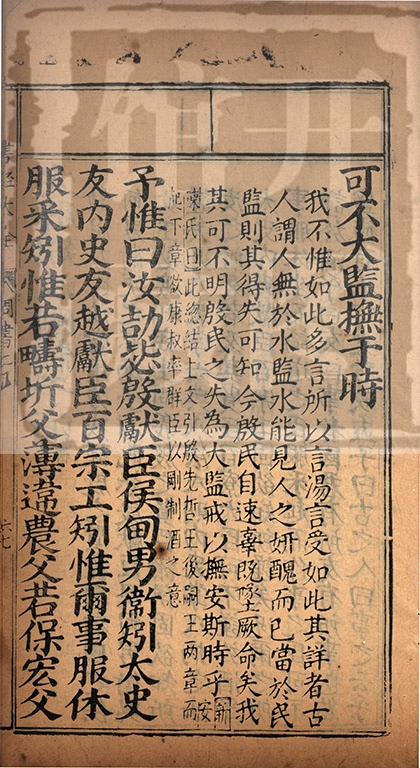 可不大監撫于時
我不惟如此多言所以言湯言受如此其詳者古
人謂人無於水監水能見人之妍醜而已當於民
監則其得失可知今殷民自速辜既墜厥命矣我
其可不明殷民之失為大監戒以撫安斯時乎新安
陳氏曰此總結上文引殷先哲王後嗣王两章而
起下章欲康叔率群臣以剛制酒之意
予惟曰汝劼毖殷獻臣侯甸男衛矧太史
友内史友越獻臣百宗工矧惟爾事服休
服采矧惟若疇圻父薄違農父若保宏父
書經大全
六七